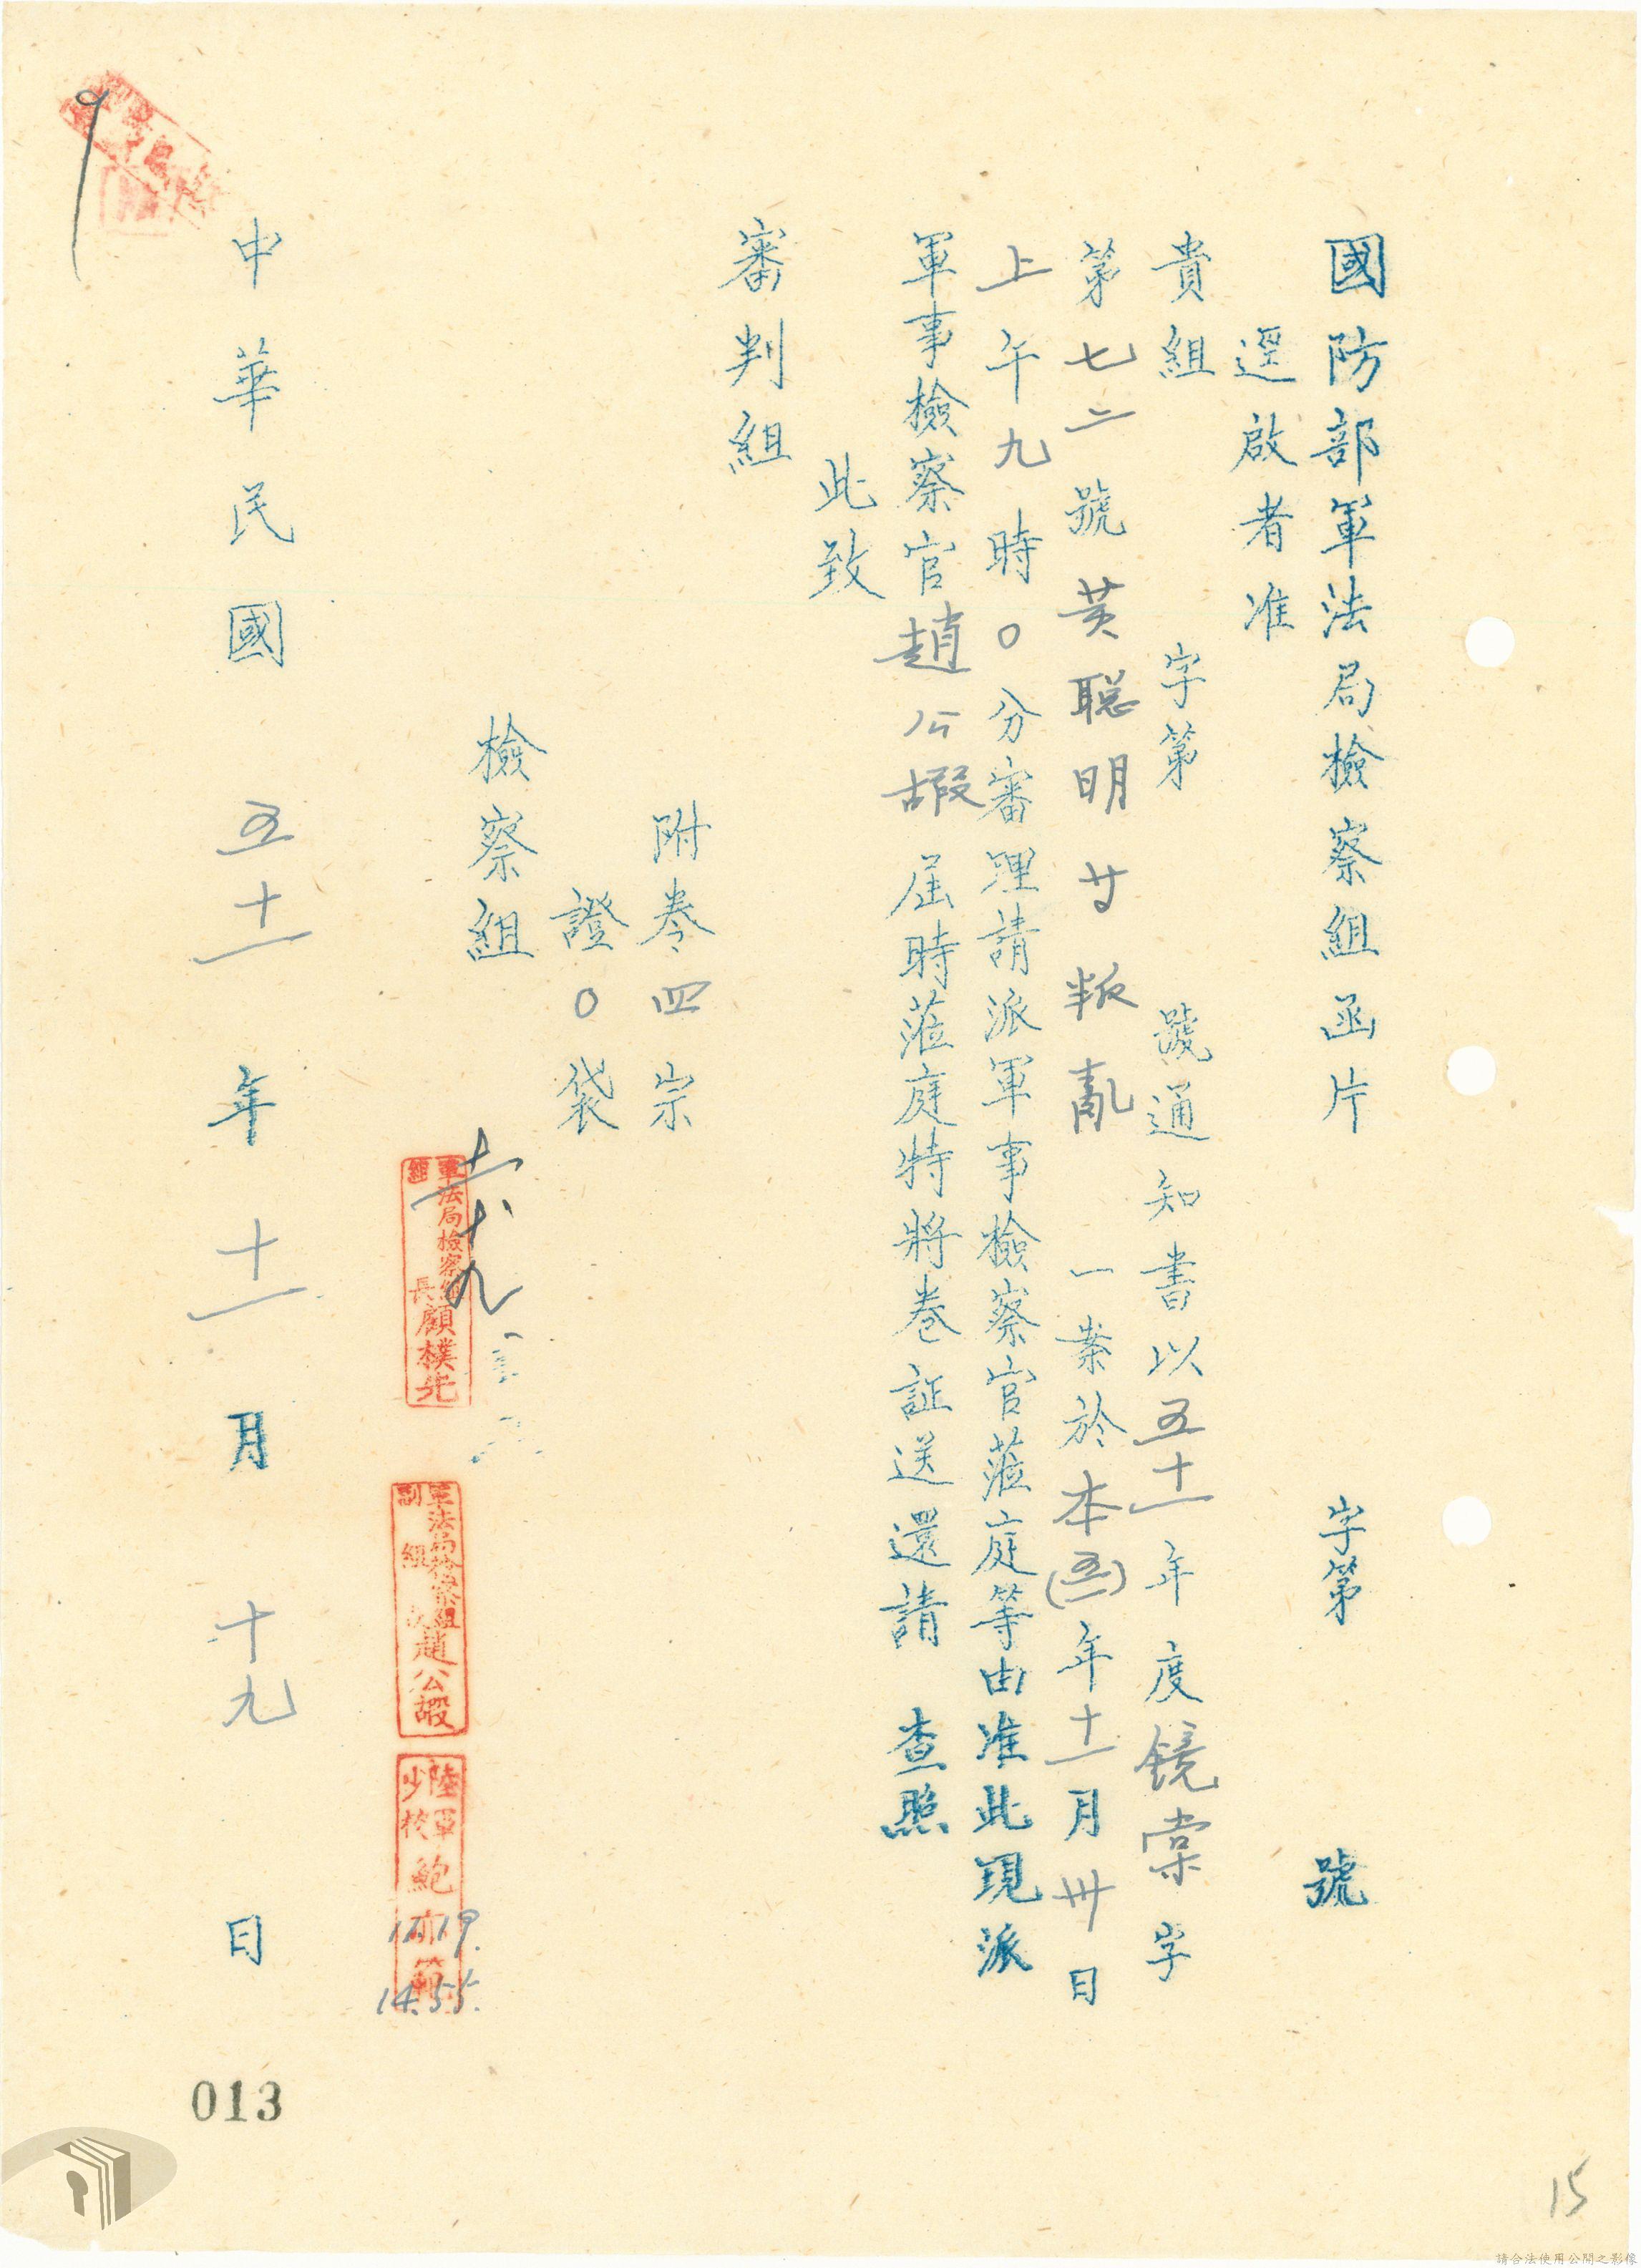 國防部軍法局檢察組函片　字第　號
逕啟者准
貴組　字第　號通知書以五十一年度鏡棠字
第七二號黃聰明廿叛亂一案於本(五一)年十一月卅日
上午九時0分審理請派軍事檢察官蒞庭等由准此現派
軍事檢察官趙公嘏屆時蒞庭特將卷証送還請　查照
此致
審判組
附卷四宗
證0袋
檢察組
軍法局檢察組組長顧樸先
十一
十九
軍法局檢察組副組長趙公嘏
陸軍少校鮑亦範
11.19.
14.55.
中華民國五十一年十一月十九日
013
15
請合法使用公開之影像